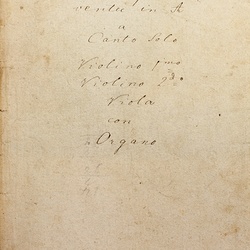 in A
a
Canto Solo
Violino 1mo
Violino 2do
Viola
con
Organo